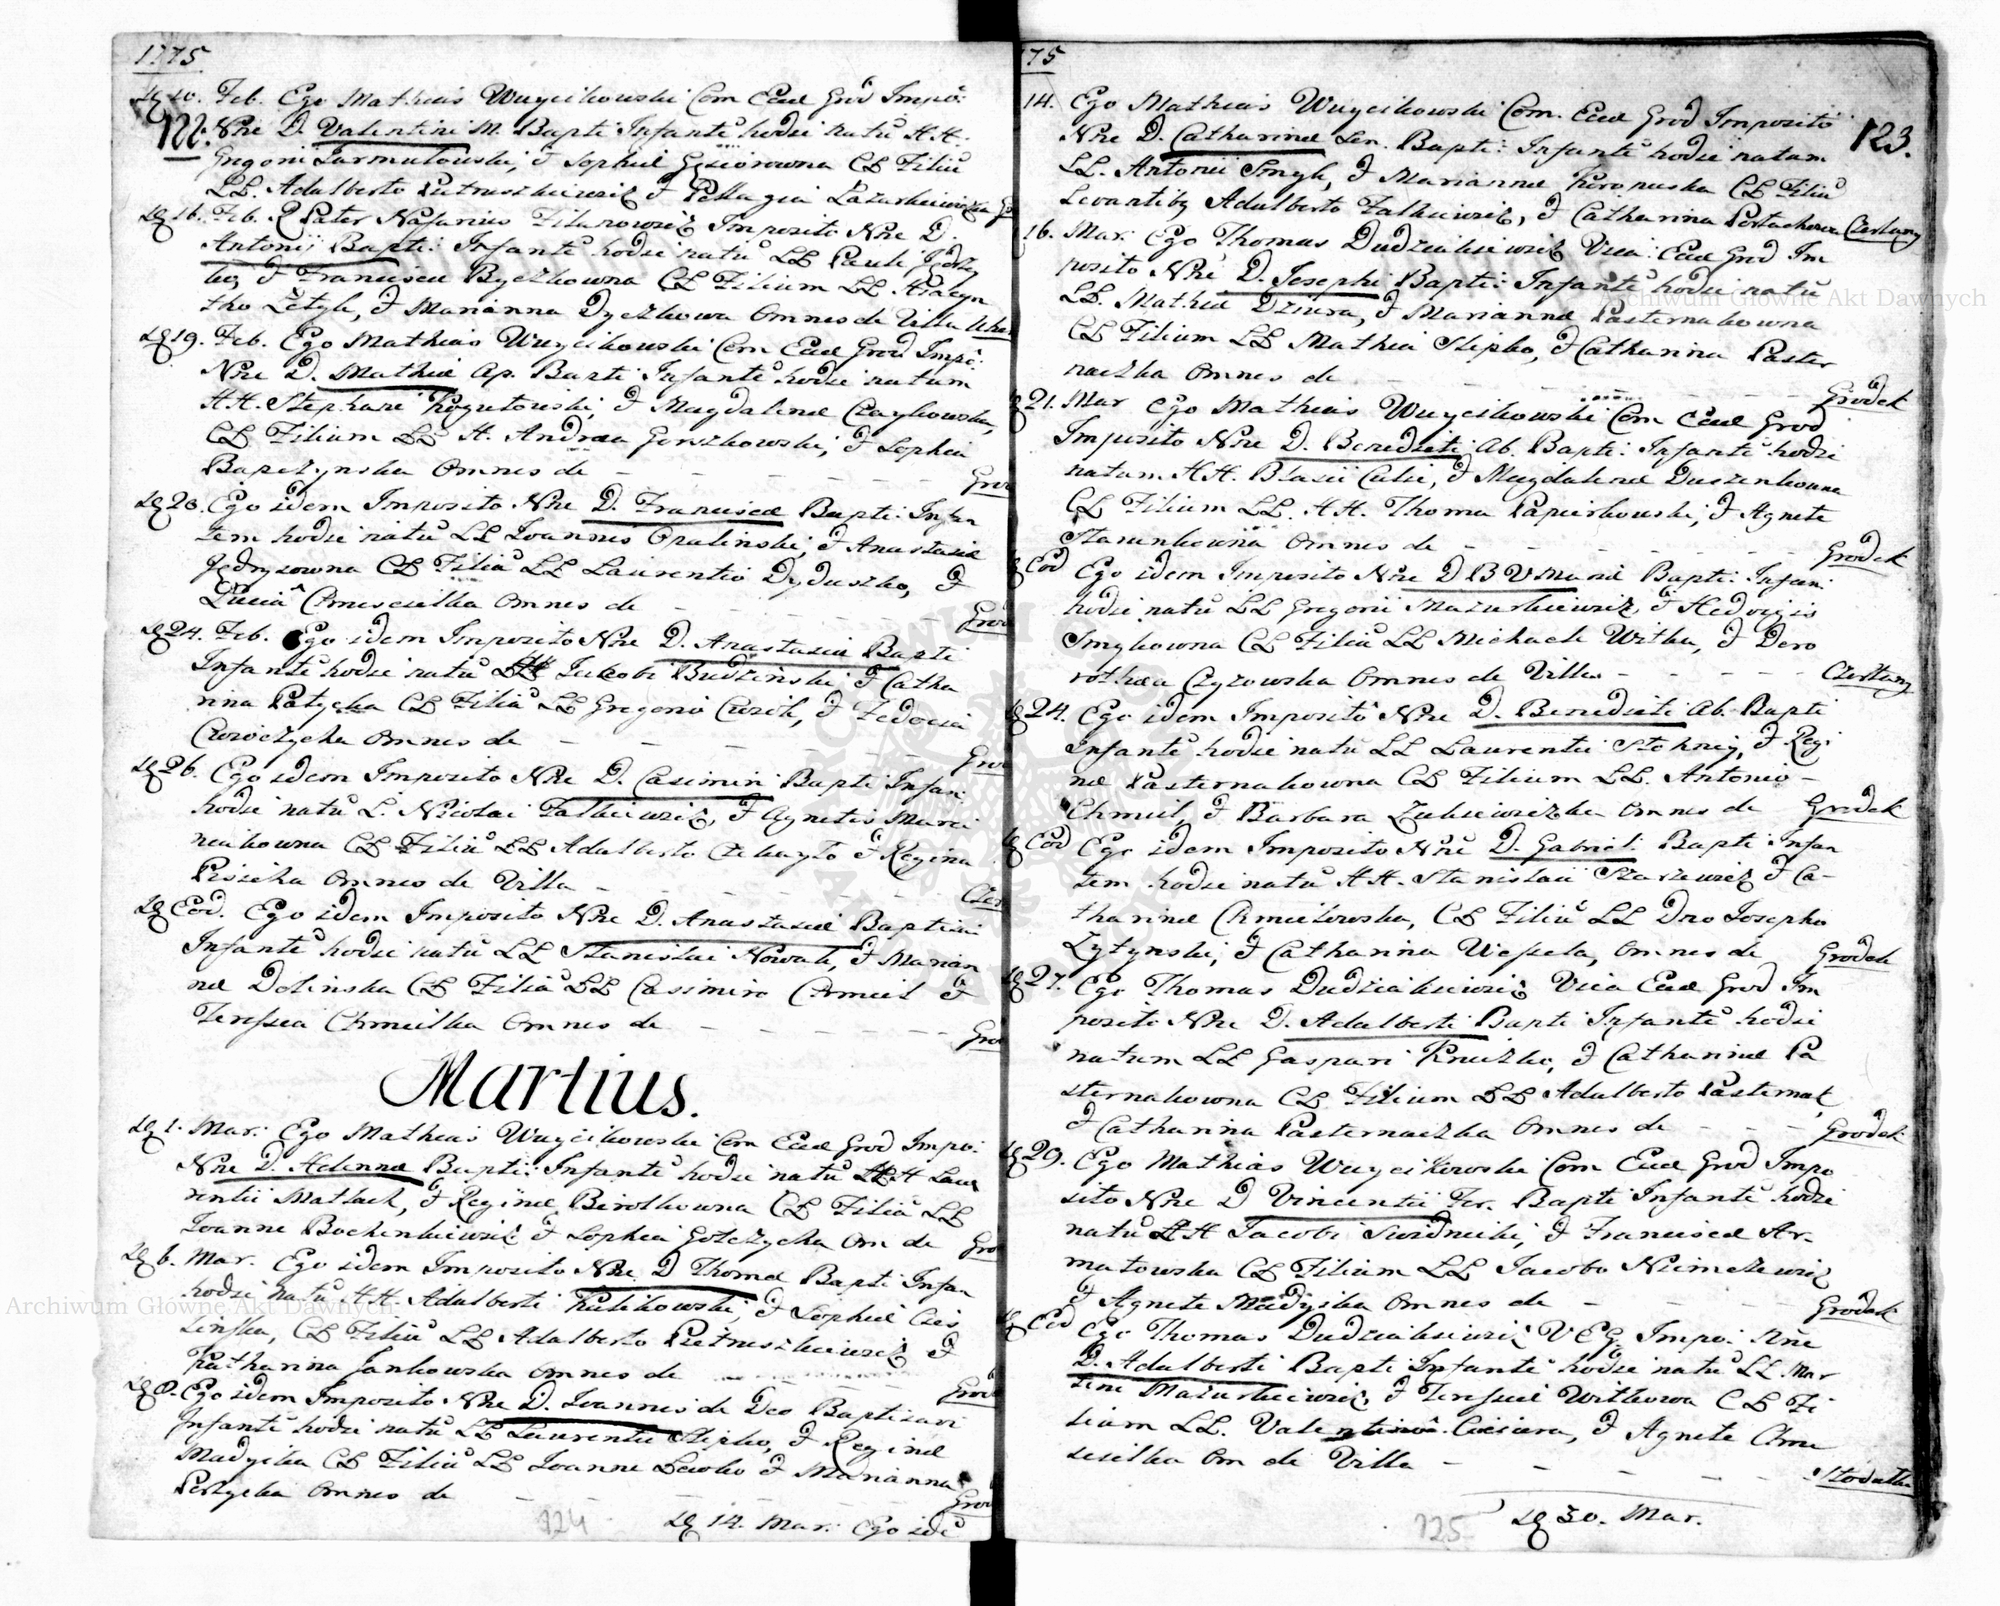 1775
D 10. Feb. Ego Mathias Wuycikowski Com Eccl Grod Impo:
122. Nne D. Valentini M. Bapti Infantē hodie natū H.H.
Gregorii Jarmutowski, & Sophiæ Gęsiorowna CL Filiū
LL. Adalberto Pietruszkiewicz & Pellagia Łazurkiewiczka
D 16. Feb. R Pater Nafarius Filarowicz Imposito Nne D.
Antonii Bapti: Infantē hodie natū LL Pauli
& Francisca Byczkowna CL Filium LL Hiacyn
tho Zetyk, & Marianna Dyczkowa Omnes de Villa
D 19. Feb. Ego Mathias Wuycikowski Com Eccl Grod Impo:
Nne D. Mathiæ Ap. Bapti Infantē hodie natum
H.H. Stephani Kogutowski, & Magdalenæ Czaykowska,
CL Filium LL H. Andrea Gorszkowski, & Sophia
Bapczynska Omnes de - - - - - Grod
D 20. Ego idem Imposito Nne D. Franciscæ Bapti: Infan
tem hodie natū LL Joannis Opalinski, & Anastasiæ
Jędrysowna CL Filiū LL Laurentio Dyduszko, &
Lucia Chmescielka Omnes de - - - - - Grod
D 24. Feb. Ego idem Imposito Nne D. Anastasiæ Bapti
Infantē hodie natū Jacobi Budzinski & Catha
rina Patycka CL Filiū LL Gregorio Cwiok, & Fedocia
Cwioczycha Omnes de - - - - - Grod
D 26. Ego idem Imposito Nne D. Casimiri Bapti Infan:
hodie natū L. Nicolai Falkiewicz, & Agnetis Marci
niakowna CL Filiū LL Adalberto & Regina
Pisicka Omnes de Villa - - - - - Czer
D Eod. Ego idem Imposito Nne D. Anastasiæ Baptisavi
Infantē hodie natū LL Stanislai Nowak, & Marian
næ Dolinska CL Filiū LL Casimiro Chmiel &
Teressia Chmielka Omnes de - - - - - Grod
Martius.
D 1. Mar: Ego Mathias Wuycikowski Com Eccl Grod Impo:
Nne D. Helennæ Bapti: Infantē hodie natū Lau
rentii Matlak, & Reginæ Birothowna CL Filiū LL
Joanne Bochenkiewicz & Sophia Gołczycka Om de Grod
D 6. Mar. Ego idem Imposito Nne D Thomæ Bapti Infan
hodie natū H.H. Adalberti Kulikowski, & Sophiæ Cies
linska, CL Filiū LL Adalberto Pietruszkiewicz &
Katharina Jankowska Omnes de Grod
D 8. Ego idem Imposito Nne D. Joannis de Deo Baptisavi
Infantē hodie natū LL Laurentii Slipko, & Reginæ
Madycka CL Filiū LL Joanne Lewko & Marianna
Perlycka Omnes de - - - - - Grod
124
D 14. Mar: Ego idē
75
123.
14. Ego Mathias Wuycikowski Com. Eccl Grod Imposito
Nne D. Catharinæ Sen. Bapti: Infantē hodie natam
LL. Antonii Smyk, & Mariannæ Kropuska CL Filiū
Levantibg Adalberto Falkiewicz, & Catharina Pertackowa Czerlany
16. Mar: Ego Thomas Dudziakiewicz Vica: Eccl Grod Im
posito Nne D. Josephi Bapti: Infantē hodie natū
LL. Mathiæ Dziura, & Mariannæ Pasternakowna
CL Filium LL Mathia Slipko, & Catharina Paster
naczka Omnes de - - - - - Grodek
D 21. Mar Ego Mathias Wuycikowski Com Eccl Grod
Imposito Nne D. Benedicti Ab. Bapti: Infantē hodie
natum H.H. Blasii Calie, & Magdalenæ Duszenkowna
CL Filium LL. H.H. Thoma Papierkowski, & Agnete
Starenkowna Omnes de - - - - - Grodek
D Eod Ego idem Imposito Nne D B V Mariæ Bapti: Infan:
hodie natū LL Gregorii Mazurkiewicz, & Hedvigis
Smykowna CL Filiū LL Michaele Witka, & Doro
rothæa Czyzowska Omnes de Villa - - - - - Czerlany
D 24. Ego idem Imposito Nne D. Benedicti Ab. Bapti
Infantē hodie natū LL Laurentii Stokniy, & Regi
næ Pasternakowna CL Filium LL. Antonio -
Chmiel, & Barbara Zukiewiczka Omnes de Grodek
D Eod Ego idem Imposito Nne D. Gabrieli Bapti Infan
tem hodie natū H.H. Stanislai Szarzewicz & Ca-
tharinæ Chmielowska, CL Filiū LL Dno Josepho
Zytynski, & Catharina Wepela, Omnes de Grodek
D 27. Ego Thomas Dudziakiewicz Vica Eccl Grod Im
posito Nne D. Adalberti Bapti Infantē hodie
natum LL Gaspari Kniszko, & Catharinæ Pa
sternakowna CL Filium LL Adalberto Pasternak
& Catharina Pasternaczka Omnes de - - - Grodek
D 29. Ego Mathias Wuycikowski Com Eccl Grod Impo
sito Nne D Vincentii Fer. Bapti Infantē hodie
natū H.H Jacobi Swidnicki, & Franciscæ Ar-
matowska CL Filium LL Jacobo Niemczewicz
& Agnete Madycka Omnes de - - - Grodek
D Eod Ego Thomas Dudziakiewicz V E G Impo: Nne
D. Adalberti Bapti Infantē hodie natū LL Mar
tini Mazurkiewicz, & Teressiæ Witkowa CL Fi
lium LL. Valentino Cisiura, & Agnete Chme
scielka Om de Villa - - - - - Stodulka
125
D 30. Mar.
Archiwum Główne Akt Dawnych
Archiwum Główne Akt Dawnych